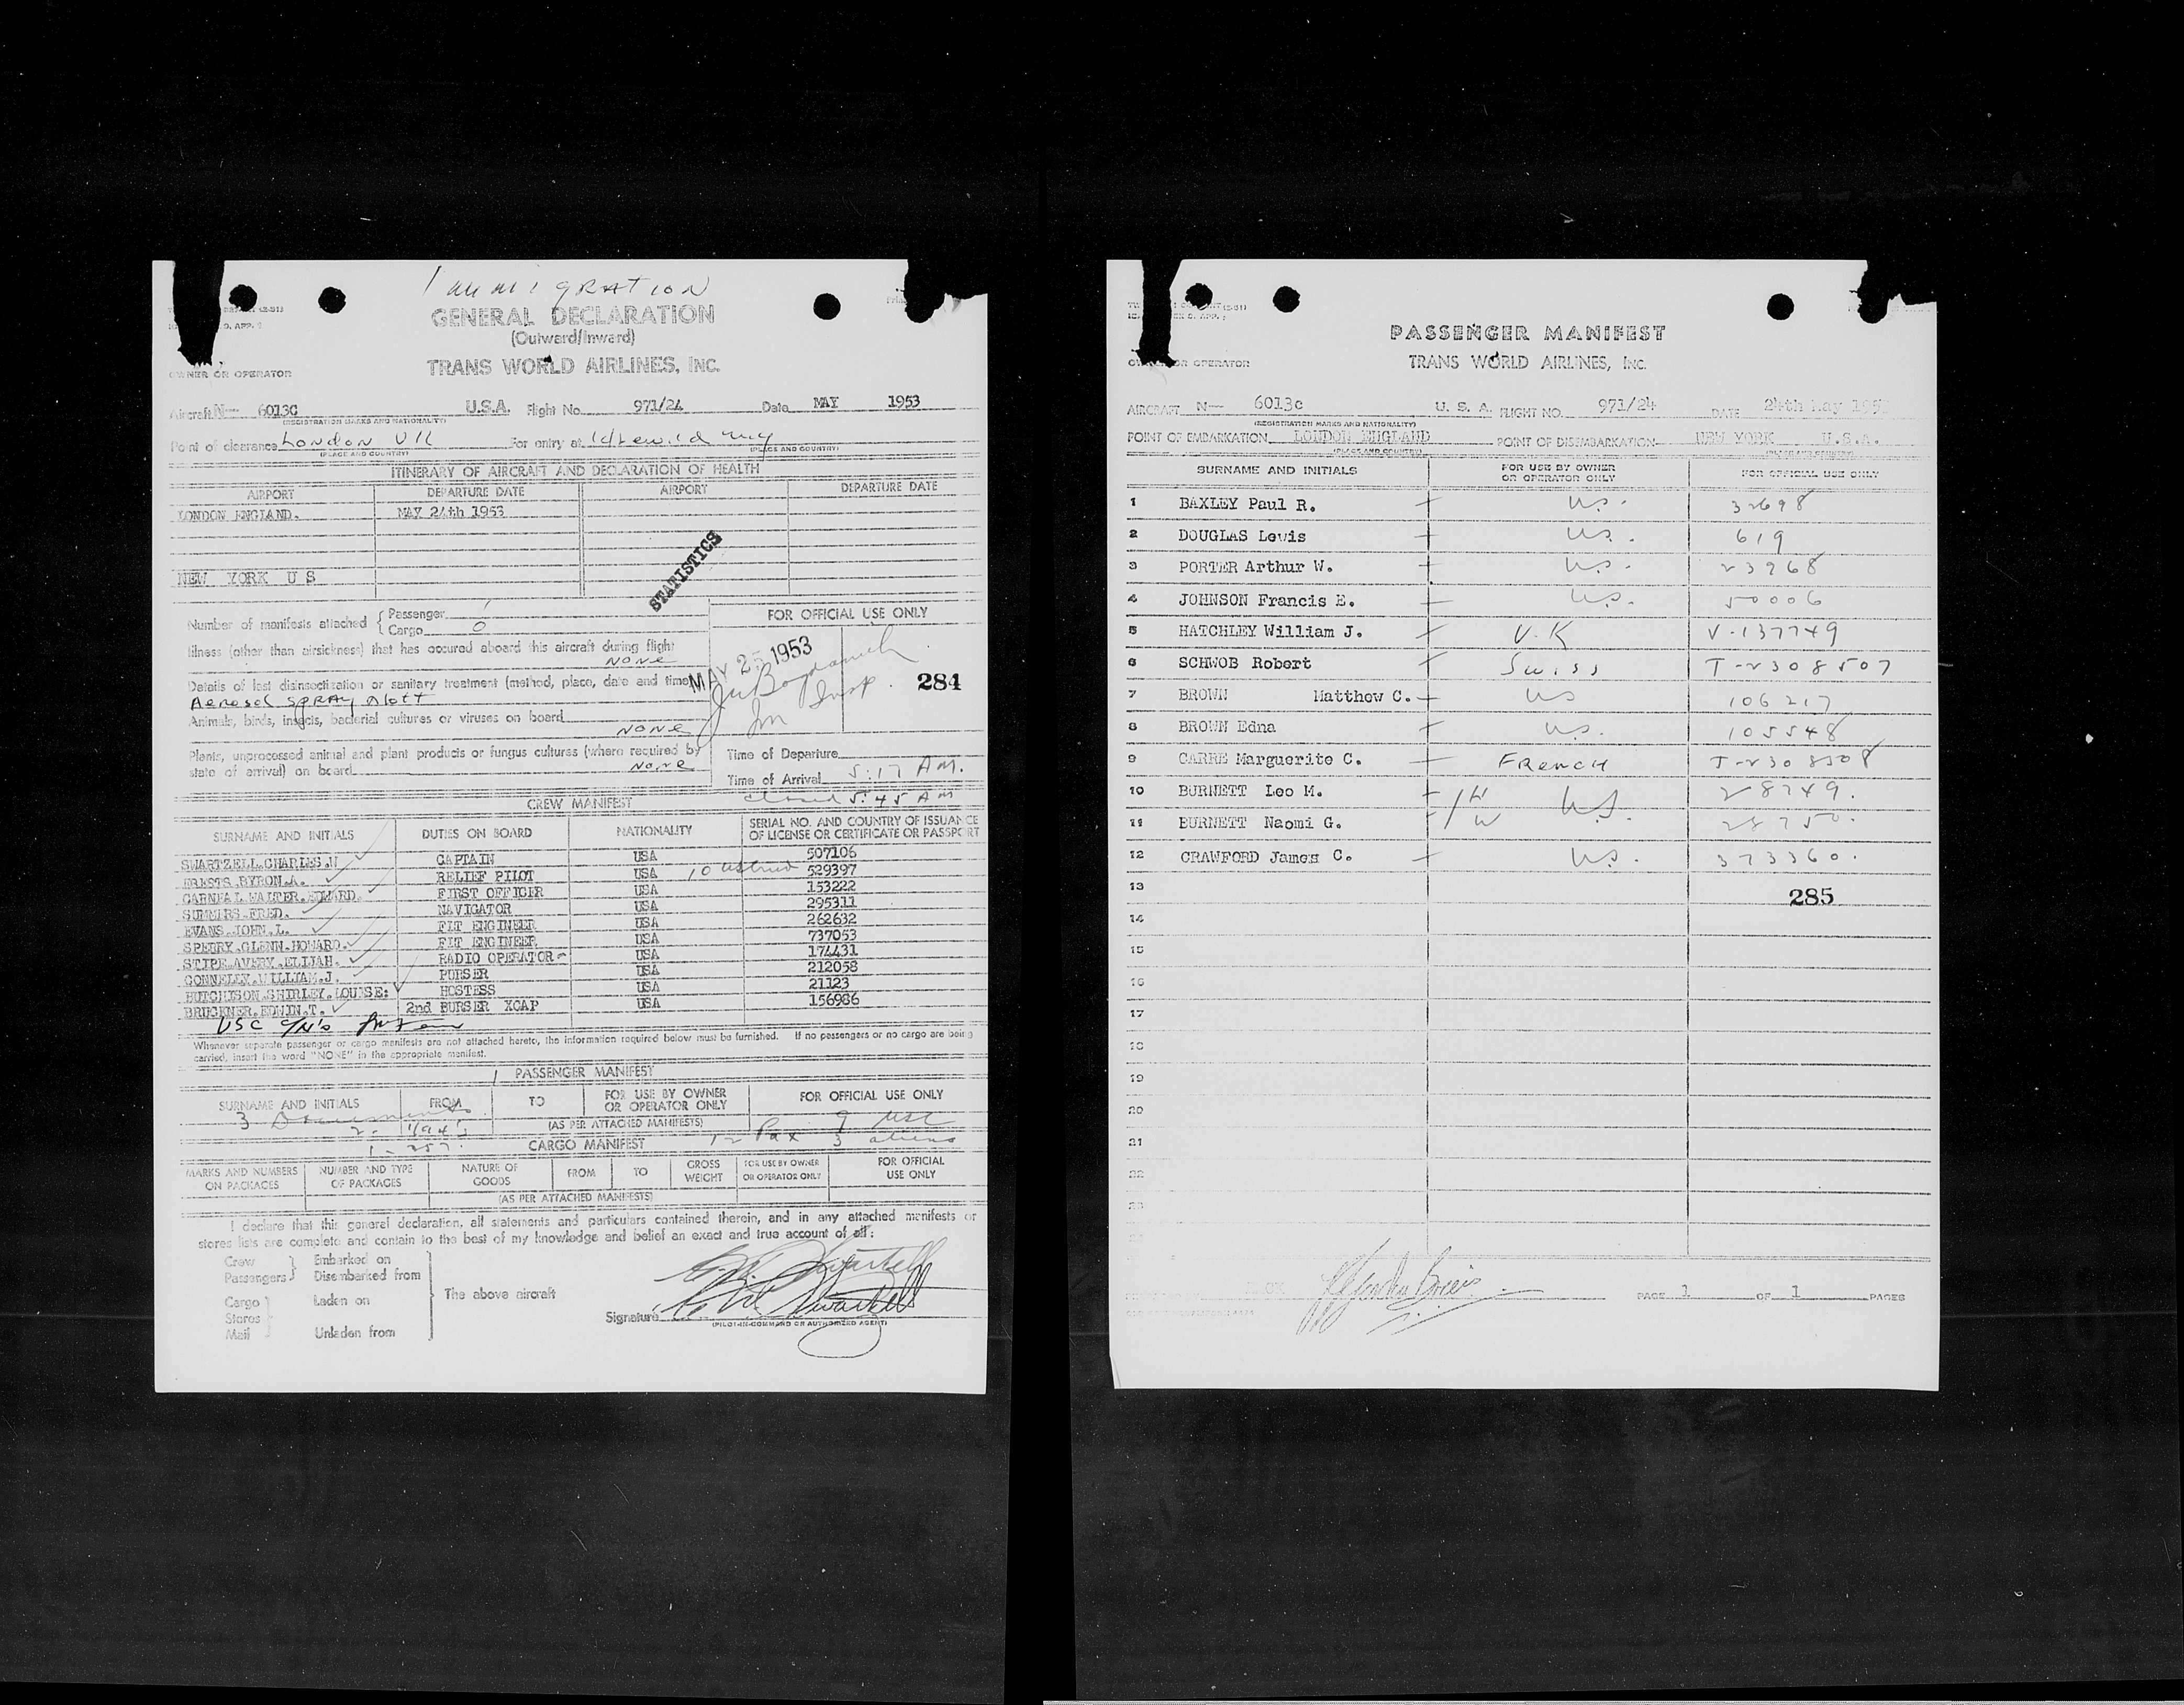 Immigration
GENERAL DECLARATION
(Outward/Inward)
TRANS WORLD AIRLINES, INC.
OWNER OR OPERATOR
Aircraft N— 6013C U.S.A. Flight No. 971/24 Date MAY 1953
(REGISTRATION MARKS AND NATIONALITY)
Point of clearance London UK For entry at Idlewild NY
(PLACE AND COUNTRY) (PLACE AND COUNTRY)
ITINERARY OF AIRCRAFT AND DECLARATION OF HEALTH
AIRPORT DEPARTURE DATE AIRPORT DEPARTURE DATE
LONDON ENGLAND. MAY 24th 1953
NEW YORK U S
STATISTICS
Number of manifests attached { Passenger 1
Cargo 0
FOR OFFICIAL USE ONLY
Illness (other than airsickness) that has occured aboard this aircraft during flight
NONE
MAY 25 1953
Details of last disinsectization or sanitary treatment (method, place, date and time)
284
Aerosol SPRAY
Imm Insp.
Animals, birds, insects, bacterial cultures or viruses on board
NONE
Plants, unprocessed animal and plant products or fungus cultures (where required by
state of arrival) on board NONE
Time of Departure
Time of Arrival 5:17 AM.
5:45 AM
CREW MANIFEST
SURNAME AND INITIALS DUTIES ON BOARD NATIONALITY SERIAL NO. AND COUNTRY OF ISSUANCE OF LICENSE OR CERTIFICATE OR PASSPORT
SWARTZELL.CHARLES.W CAPTAIN USA 507106
BYRON.A. RELIEF PILOT USA 529397
CARNEAL.WALTER.EDWARD. FIRST OFFICER USA 153222
SUMMERS.FRED. NAVIGATOR USA 295311
EVANS.JOHN.L. FLT ENGINEER USA 262632
SPERRY.GLENN.HOWARD. FLT ENGINEER USA 737053
STIPE.AVERY.ELIJAH. RADIO OPERATOR USA 174431
CONNELLY.WILLIAM.J. PURSER USA 212058
HUTCHISON.SHIRLEY.LOUISE: HOSTESS USA 21123
BRUCKNER.EDWIN.T. 2nd BURSER XCAP USA 156986
USC
Whenever separate passenger or cargo manifests are not attached hereto, the information required below must be furnished. If no passengers or no cargo are being
carried, insert the word "NONE" in the appropriate manifest.
PASSENGER MANIFEST
SURNAME AND INITIALS FROM TO FOR USE BY OWNER OR OPERATOR ONLY FOR OFFICIAL USE ONLY
3 Documents 9 USC
(AS PER ATTACHED MANIFESTS)
1-257
CARGO MANIFEST 12 Pax 3 aliens
MARKS AND NUMBERS ON PACKAGES NUMBER AND TYPE OF PACKAGES NATURE OF GOODS FROM TO GROSS WEIGHT FOR USE BY OWNER OR OPERATOR ONLY FOR OFFICIAL USE ONLY
(AS PER ATTACHED MANIFESTS)
I declare that this general declaration, all statements and particulars contained therein, and in any attached manifests or
stores lists are complete and contain to the best of my knowledge and belief an exact and true account of all:
Crew } Embarked on
Passengers } Disembarked from
Cargo } Laden on
Stores
Mail } Unladen from
The above aircraft
Signature C. W. Swartzell
(PILOT-IN-COMMAND OR AUTHORIZED AGENT)
PASSENGER MANIFEST
TRANS WORLD AIRLINES, INC.
OWNER OR OPERATOR
AIRCRAFT N— 6013c U. S. A. FLIGHT NO. 971/24 DATE 24th May 195
(REGISTRATION MARKS AND NATIONALITY)
POINT OF EMBARKATION LONDON ENGLAND POINT OF DISEMBARKATION NEW YORK U.S.A.
(PLACE AND COUNTRY) (PLACE AND COUNTRY)
SURNAME AND INITIALS FOR USE BY OWNER OR OPERATOR ONLY FOR OFFICIAL USE ONLY
1 BAXLEY Paul R. U.S. 32698
2 DOUGLAS Lewis U.S. 619
3 PORTER Arthur W. U.S. 23968
4 JOHNSON Francis E. U.S. 50006
5 HATCHLEY William J. U.K V-137749
6 SCHWOB Robert Swiss T-2308507
7 BROWN Matthew C. US 106217
8 BROWN Edna U.S. 105548
9 CARRE Marguerite C. FRENCH T-2308508
10 BURNETT Leo M. H U.S. 28749.
11 BURNETT Naomi G. W 28750.
12 CRAWFORD James C. U.S. 373360.
13 285
14
15
16
17
18
19
20
21
22
23
24
PAGE 1 OF 1 PAGES